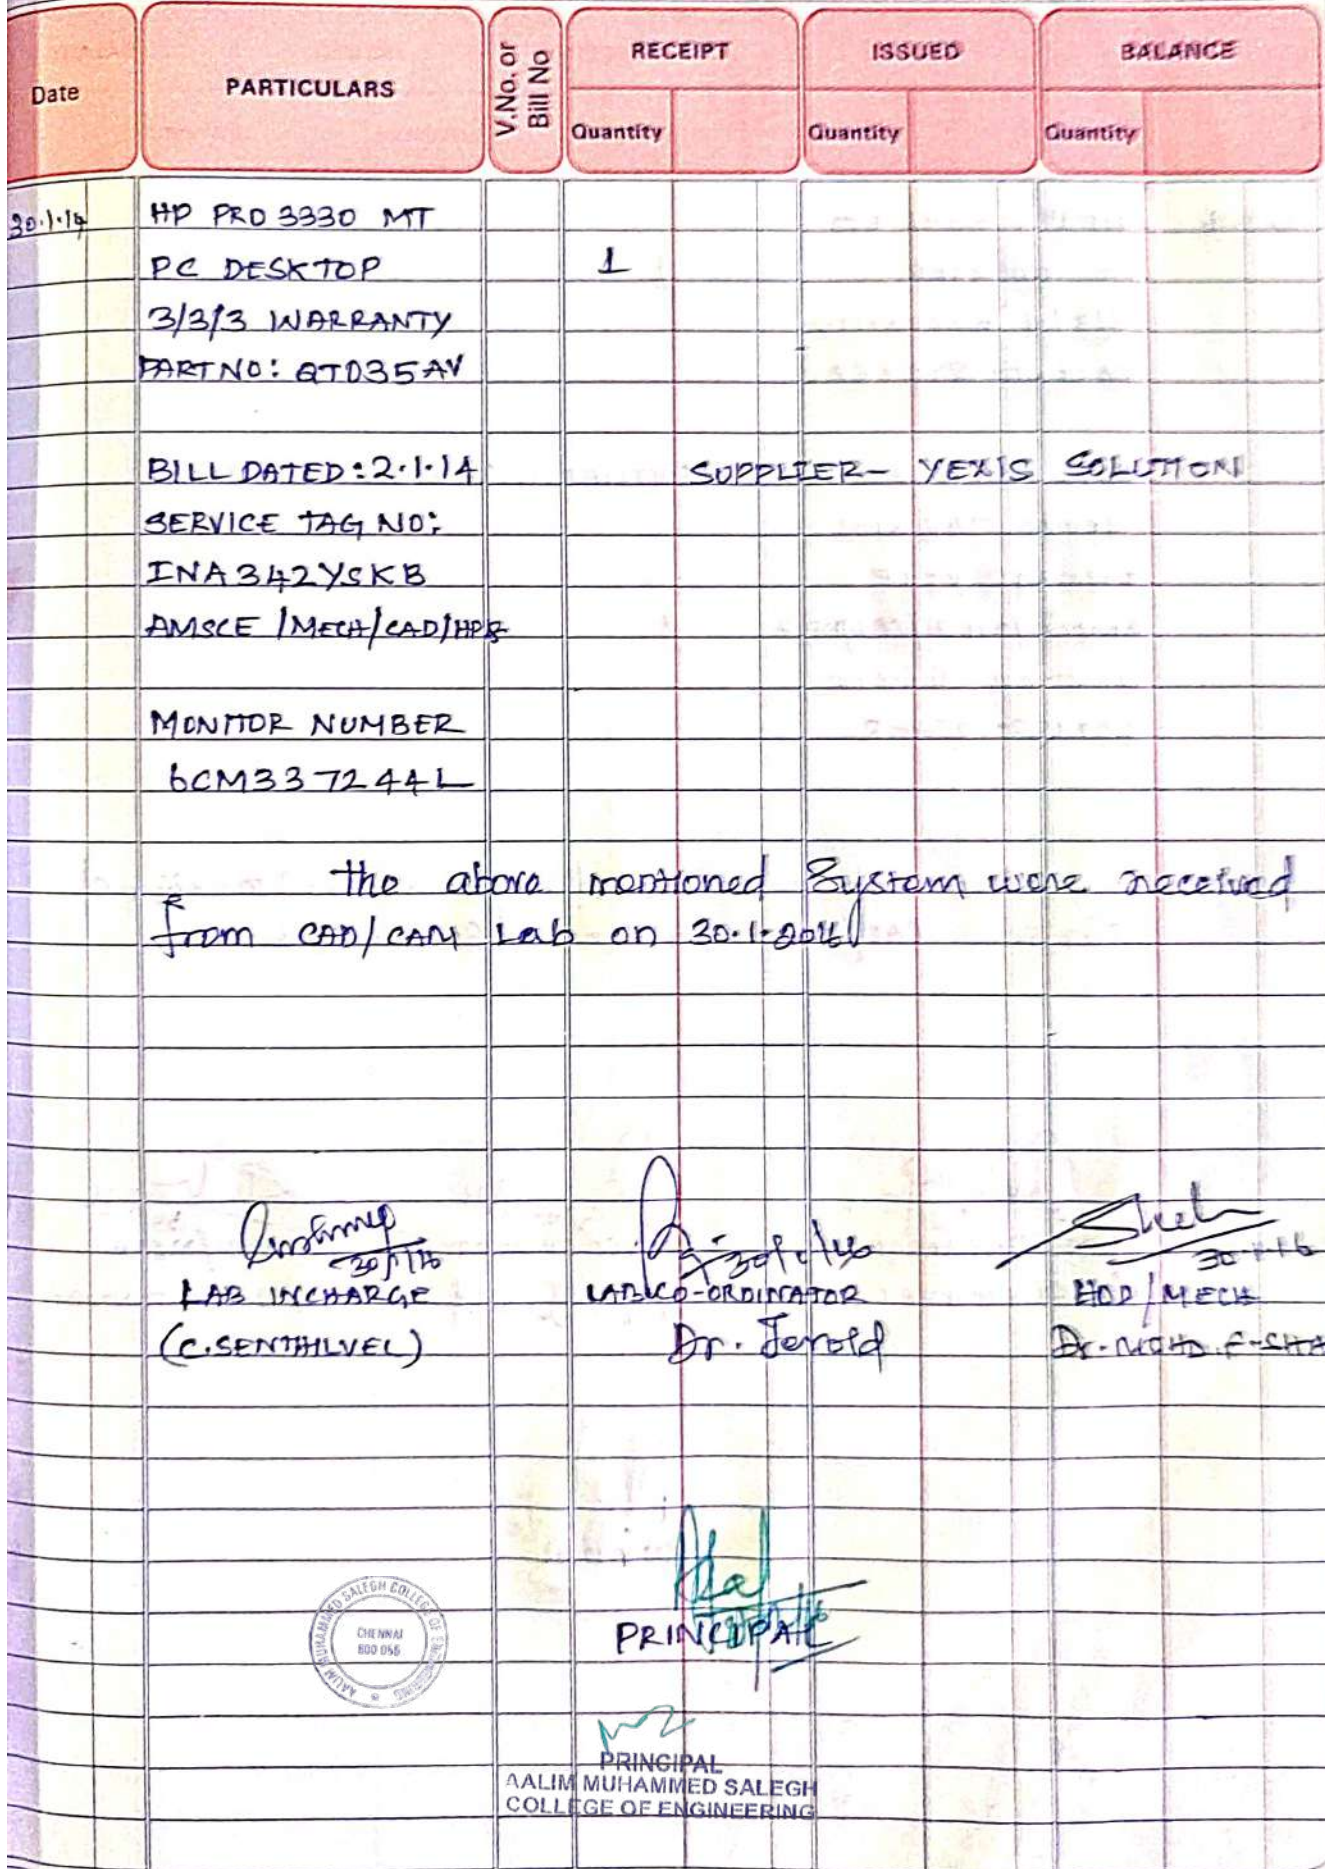 Date PARTICULARS V.No. or Bill No RECEIPT ISSUED BALANCE
Quantity Quantity Quantity
30.1.14 HP PRO 3330 MT
PC DESKTOP 1
3/3/3 WARRANTY
PART NO: QT035AV
BILL DATED: 2.1.14 SUPPLIER- YEXIS SOLUTION
SERVICE TAG NO:
INA342YSKB
AMSCE /MECH/CAD/HP
MONITOR NUMBER
6CM337244L
the above mentioned System were received
from CAD/CAM Lab on 30.1.2016
30/1/16 30/1/16 30.1.16
LAB INCHARGE LAB CO-ORDINATOR HOD/MECH
(C.SENTHILVEL) Dr. Jerold Dr. MOHD. F-SHA
PRINCIPAL
AALIM MUHAMMED SALEGH COLLEGE OF ENGINEERING
CHENNAI
600 055
PRINCIPAL
AALIM MUHAMMED SALEGH
COLLEGE OF ENGINEERING